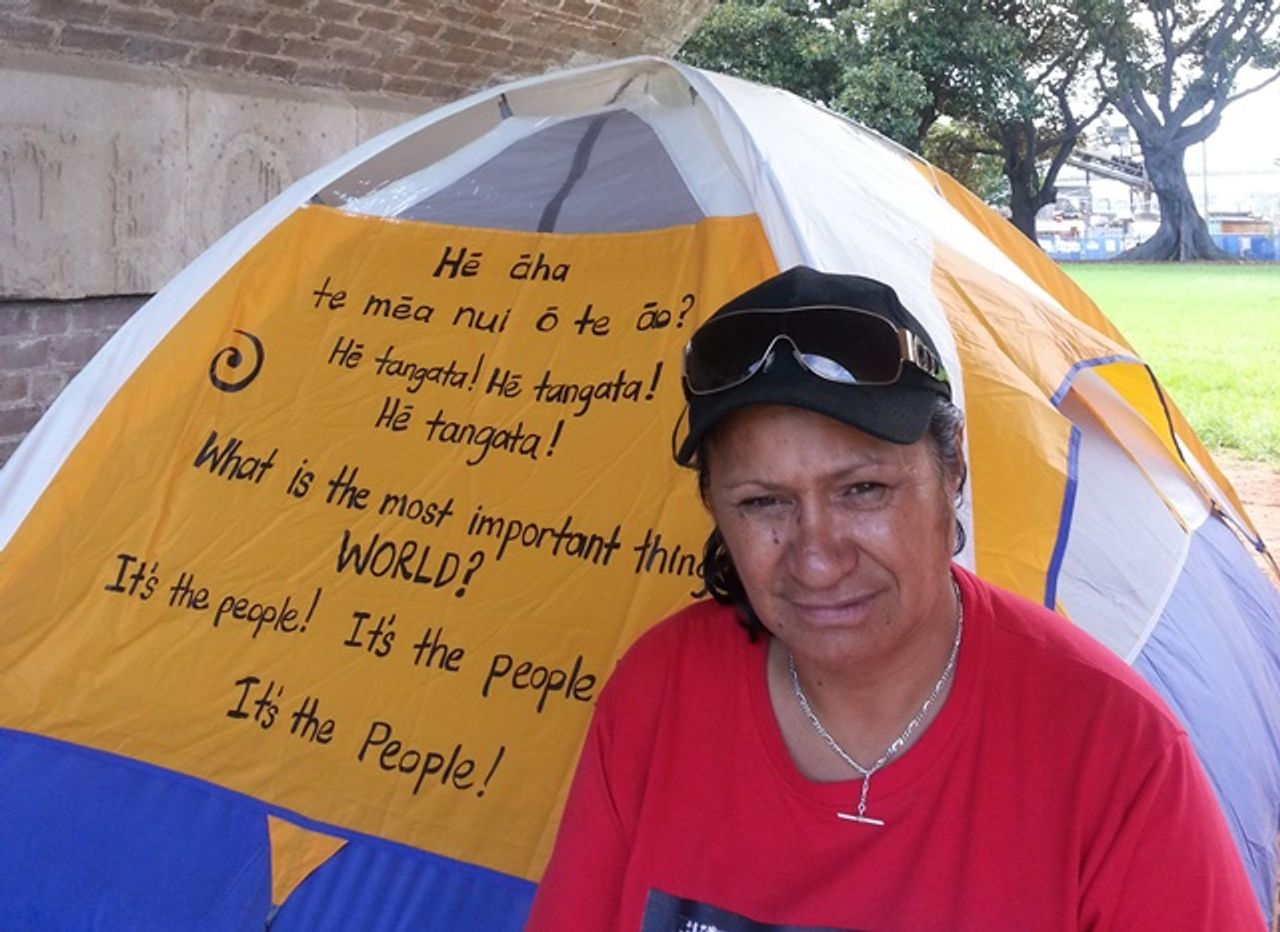 Hē āha
te mēa nui ō te āo?
Hē tangata! Hē tangata!
Hē tangata!
What is the most important thing
WORLD?
It's the people! It's the people
It's the People!